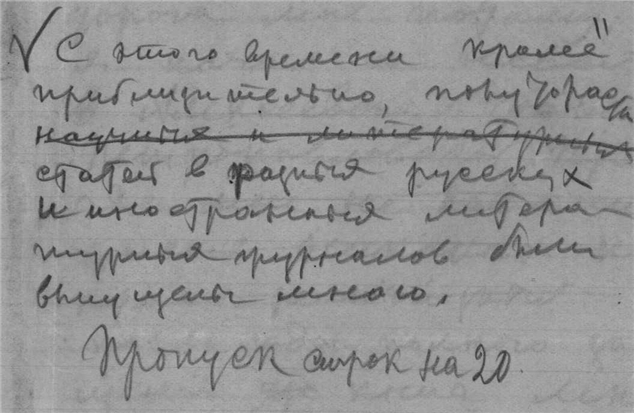 √ С этого времени кроме "
приблизительно, полуторас та
научныя и литературныя
статей в разныя русских
и иностранныя литера-
турныя журналов были
выпущены мною.
Пропуск строк на 20.